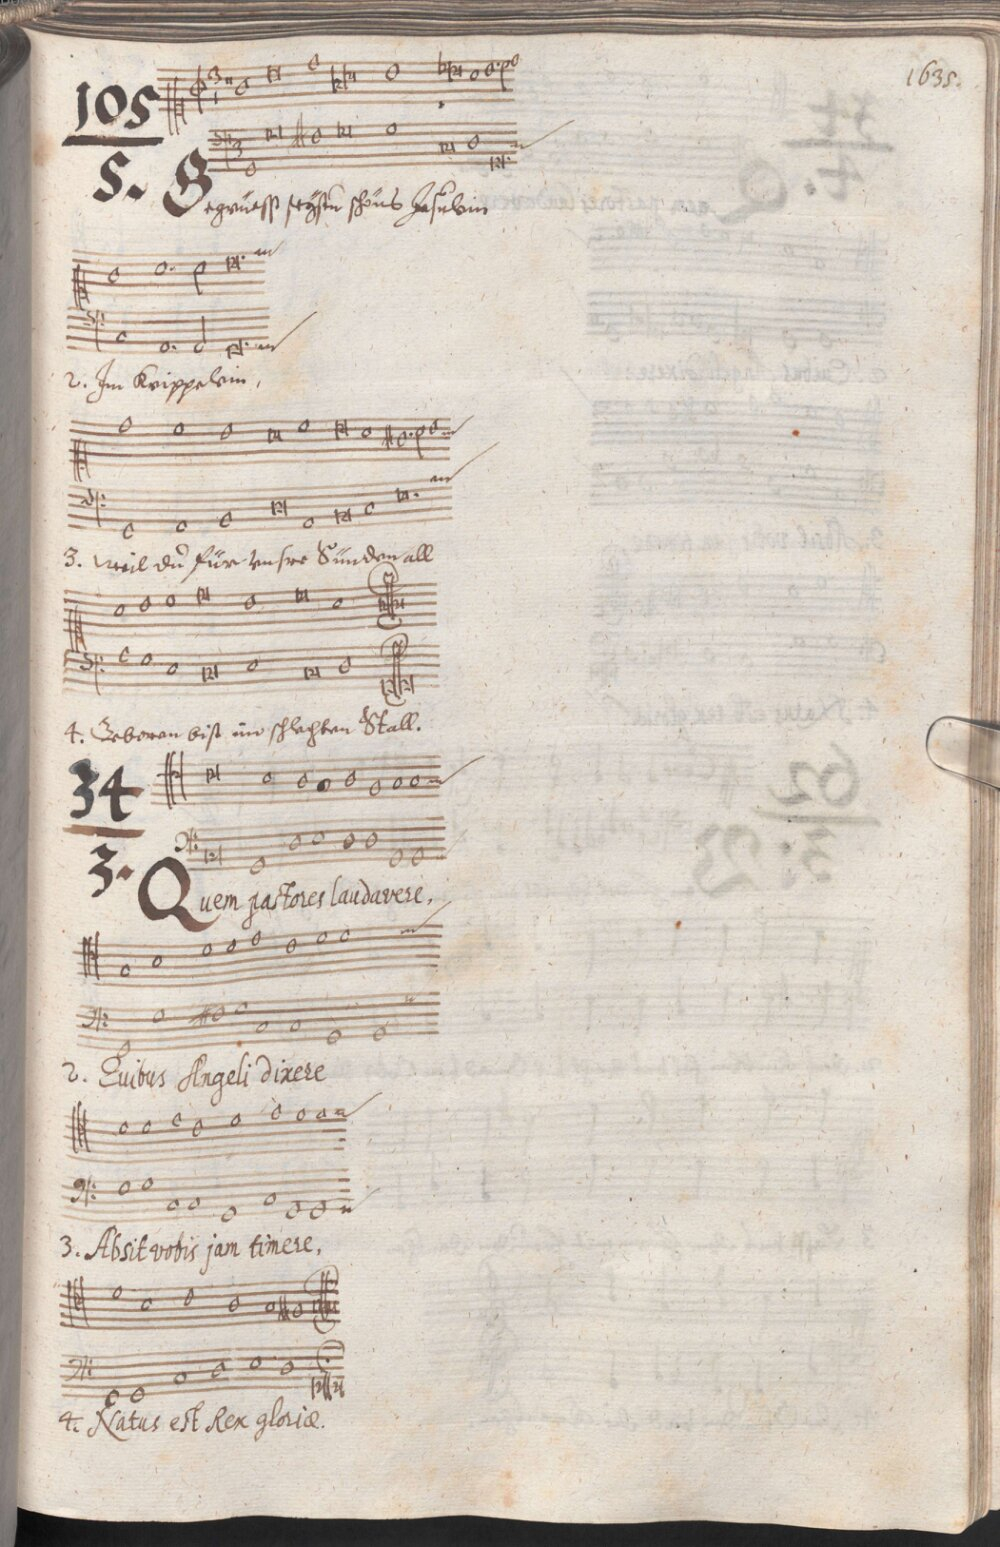 1635.
105
5. Gegrüesst seystu schöns Jesulein
2. Im Krippelein,
3. weil du für unsre Sünden all
4. Geboren bist im schlechten Stall.
34
3. Quem pastores laudavere,
2. Quibus Angeli dixere
3. Absit vobis jam timere,
4. Natus est Rex gloriæ.